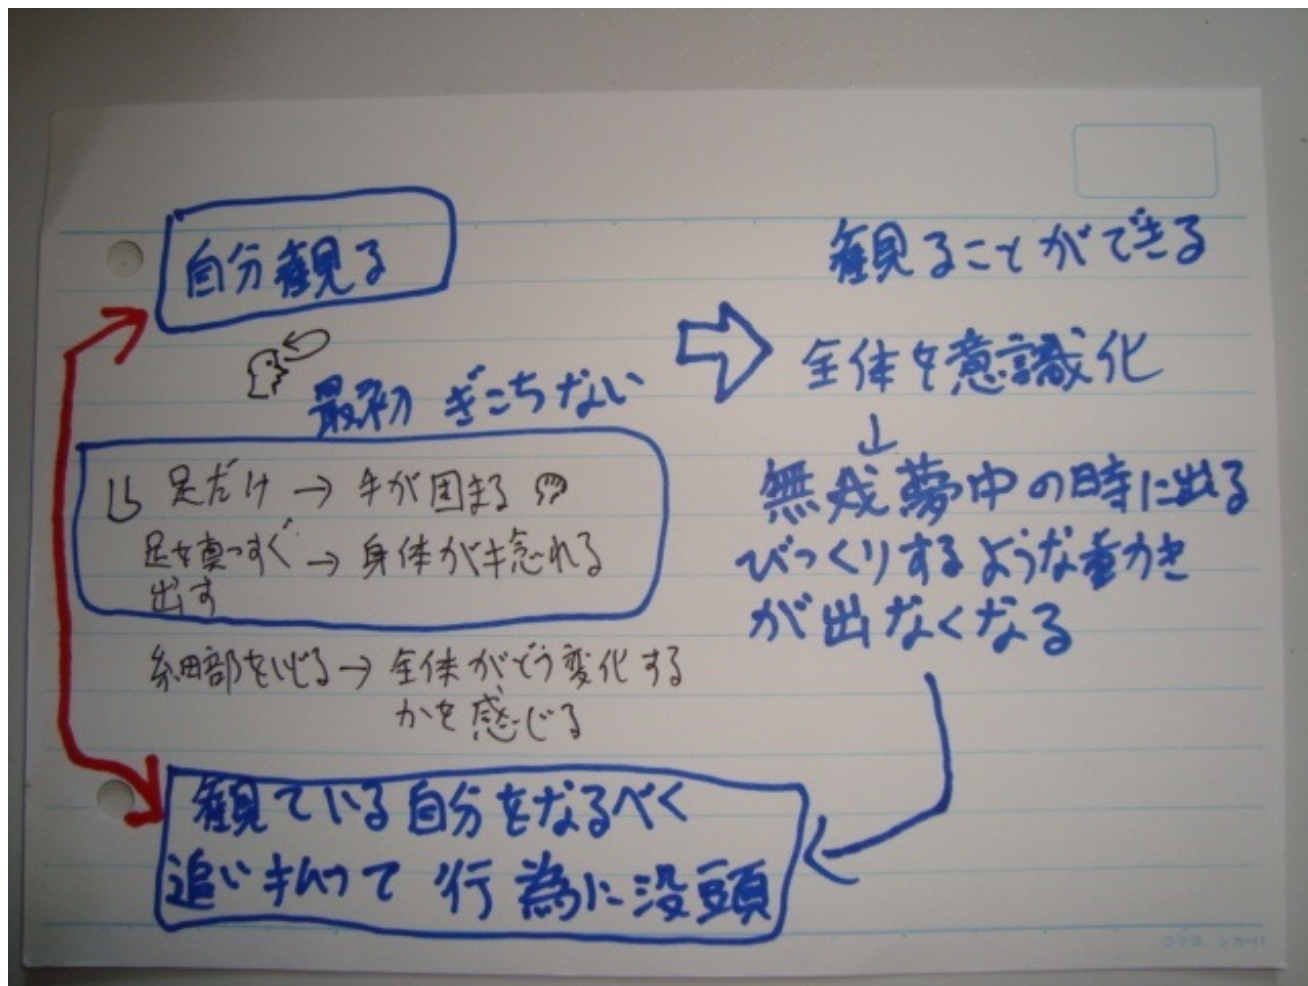 自分観る
最初 ぎこちない
足だけ → 手が固まる
足を真っすぐ → 身体が捻れる
出す
細部をいじる → 全体がどう変化する
かを感じる
観ることができる
全体を意識化
↓
無我夢中の時に出る
びっくりするような動き
が出なくなる
観ている自分をなるべく
追い払って 行為に没頭
コクヨ シカ-11